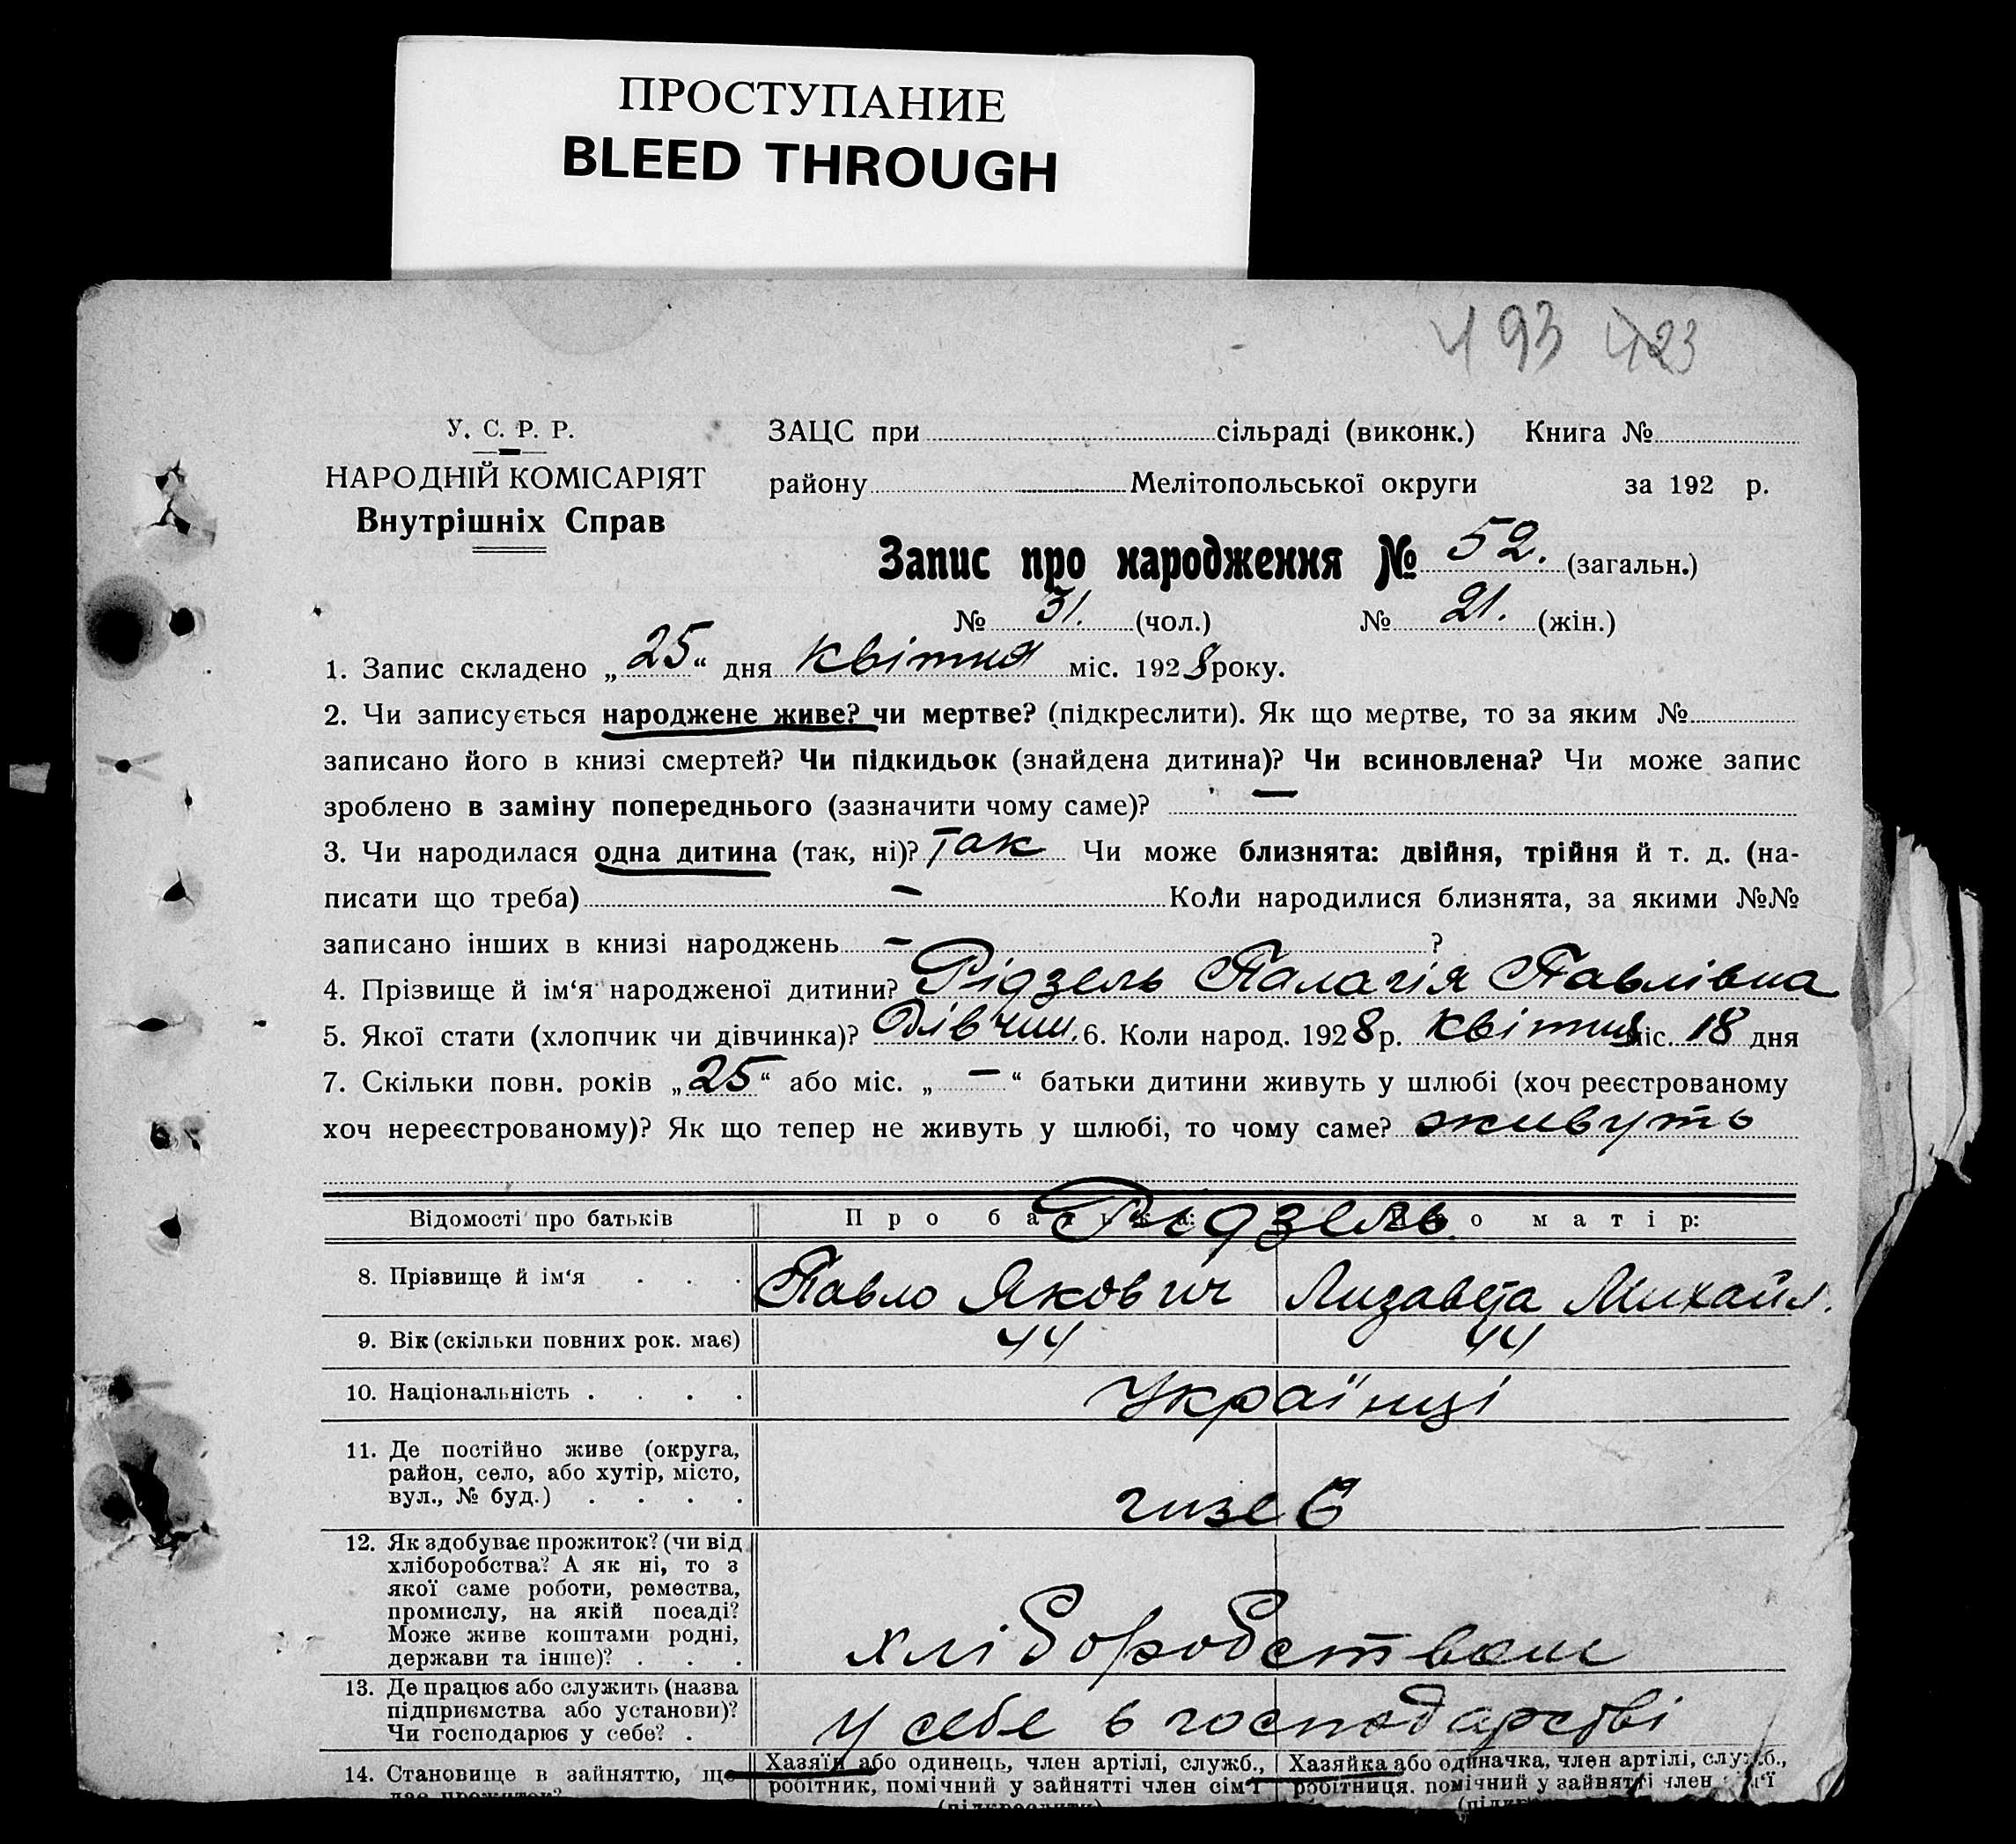 ПРОСТУПАНИЕ
BLEED THROUGH
493 423
У. С. Р. Р.
НАРОДНІЙ КОМІСАРІЯТ
Внутрішніх Справ
ЗАЦС при сільраді (виконк.) Книга №
району Мелітопольської округи за 192 р.
Запис про народження № 52. (загальн.)
№ 31. (чол.) № 21. (жін.)
1. Запис складено „25“ дня квітня міс. 1928 року.
2. Чи записується народжене живе? чи мертве? (підкреслити). Як що мертве, то за яким №
записано його в книзі смертей? Чи підкидьок (знайдена дитина)? Чи всиновлена? Чи може запис
зроблено в заміну попереднього (зазначити чому саме)? —
3. Чи народилася одна дитина (так, ні)? Так Чи може близнята: двійня, трійня й т. д. (на-
писати що треба) — Коли народилися близнята, за якими №№
записано інших в книзі народжень — ?
4. Прізвище й ім‘я народженої дитини? Рідзель Палагія Павлівна
5. Якої стати (хлопчик чи дівчинка)? Дівчин. 6. Коли народ. 1928 р. квітня міс. 18 дня
7. Скільки повн. років „25“ або міс. „—“ батьки дитини живуть у шлюбі (хоч реєстрованому
хоч нереєстрованому)? Як що тепер не живуть у шлюбі, то чому саме? живуть
Відомості про батьків Про батька: Про матір:
Рідзель
8. Прізвище й ім‘я . . . Павло Якович Лизавета Михайл.
9. Вік (скільки повних рок. має) 44 44
10. Національність . . . . Українці
11. Де постійно живе (округа,
район, село, або хутір, місто,
вул., № буд.) . . . .
12. Як здобуває прожиток? (чи від
хліборобства? А як ні, то з
якої саме роботи, ремества,
промислу, на якій посаді?
Може живе коштами родні,
держави та інше)? . . . хліборобством
13. Де працює або служить (назва
підприємства або установи)?
Чи господарює у себе? . у себе в господарстві
14. Становище в зайняттю, що
дає прожиток?
Хазяїн або одинець, член артілі, служб.,
робітник, помічний у зайнятті член сім‘ї
(підкреслити)
Хазяйка або одиначка, член артілі, служб.,
робітниця, помічний у зайнятті член